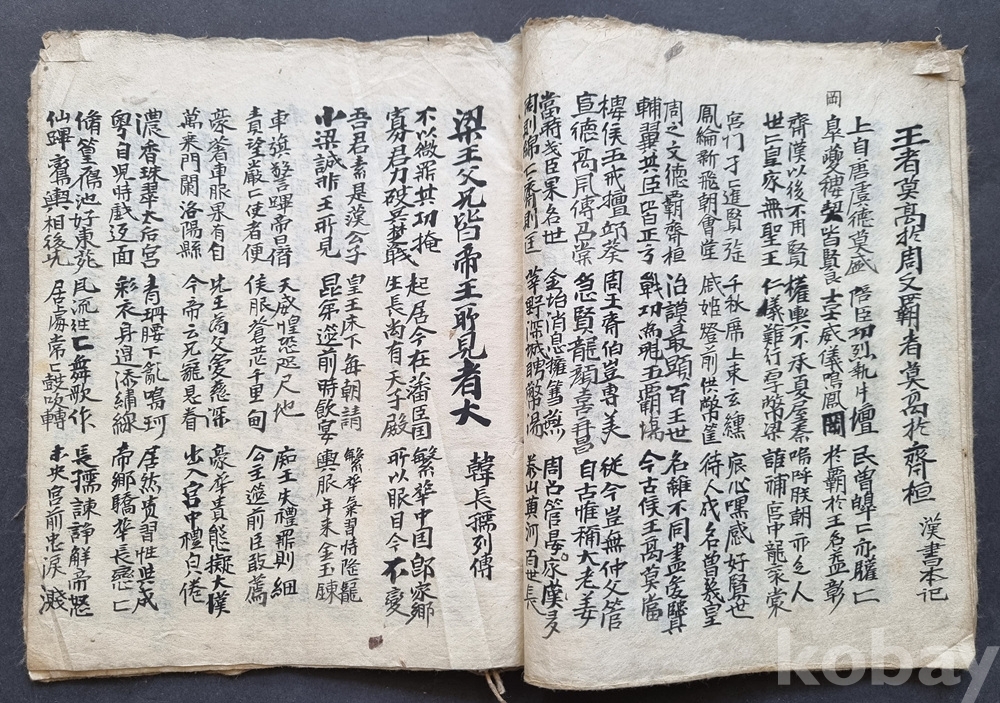 王者莫高於周文覇者莫高於齊桓 漢書本记
岡
上自唐虞德莫盛 陪臣功烈執牛壇 民曽皥亡亦驩亡
阜夔稷契皆賢良 士士威儀鳴鳳岡 於覇於王名益彰
齊漢以後不用賢 權輿不承夏屋秦 嗚呼朕朝亦乏人
世亡皇家無聖王 仁儀難行雫幣梁 誰補宮中龍袞裳
宮門才亡進賢 千秋席上束玄纁 哀心嘿感好賢世
鳳綸新飛朝會堂 戚姬燈前供幣筐 待人成名曽幾皇
周之文德覇齊桓 治謨最顕百王世 名雖不同盡後賢
輔翼共臣四正亏 戰功烏明五覇場 今古侯王高莫當
樓侯五戒擅邱葵 周王齊伯豈專美 従今豈無仲父管
宣德高風傳乃棠 急賢龍顔喜再昌 自古惟稱大老姜
當時幾臣果名世 金泊消息擁篲燕 周呂管晏床廣多
周則綿亡齊則匡 莘野深誠聘幣湯 泰山黃河百世長
梁王父兄皆帝王所見者大 韓長孺列傳
不以微罪共功掩 起居今在潘臣国 繁華中国即家鄉
寡君力破吴楚戝 生長尚有天子殿 所以眼目今不变
吾君素是漢公子 皇王床下每朝請 繁華氣習恃隆寵
小梁誠非王所見 昆弟筵前時飲宴 輿服年来金玉鍊
車旗警蹕帝曰僭 天威惶恐咫尺地 痴王失禮罪則細
責望嚴亡使者便 侯服蒼茫千里甸 公主筵前臣敢薦
豪奢車服果有自 此王高父愛慈深 豪華責態擬大漢
萬乘門闌洛陽縣 今帝云兄寵恩眷 出入宮中禮白倦
濃香珠翠太后宮 青珊腰下亂鳴珂 居然貴習性些成
粤自児時戱逕面 彩衣身邉添繡線 帝鄉驕華長戀亡
脩篁鴈池好東苑 凡沉进亡舞歌作 長孺諫諍解帝怒
仙蹕鸞輿相後先 居處常亡鼓吹轉 未央宮前忠淚濺
kobay